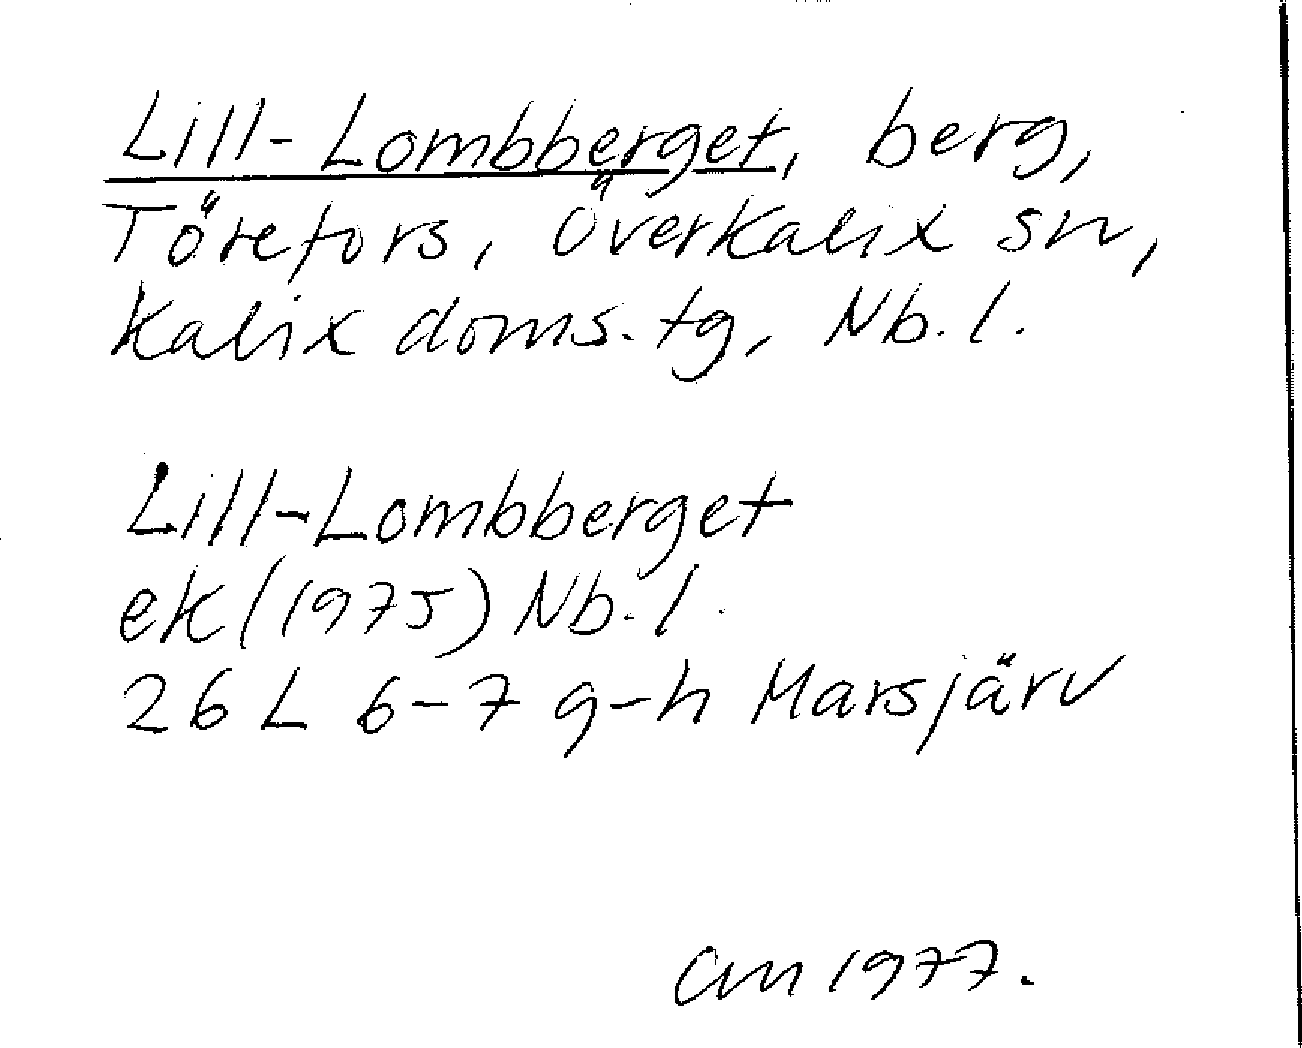 Lill-Lombberget, berg,
Törefors, Överkalix sn,
Kalix doms.tg, Nb.l.
Lill-Lombberget
ek (1975) Nb.l.
26 L 6-7 g-h Marsjärv
1977.